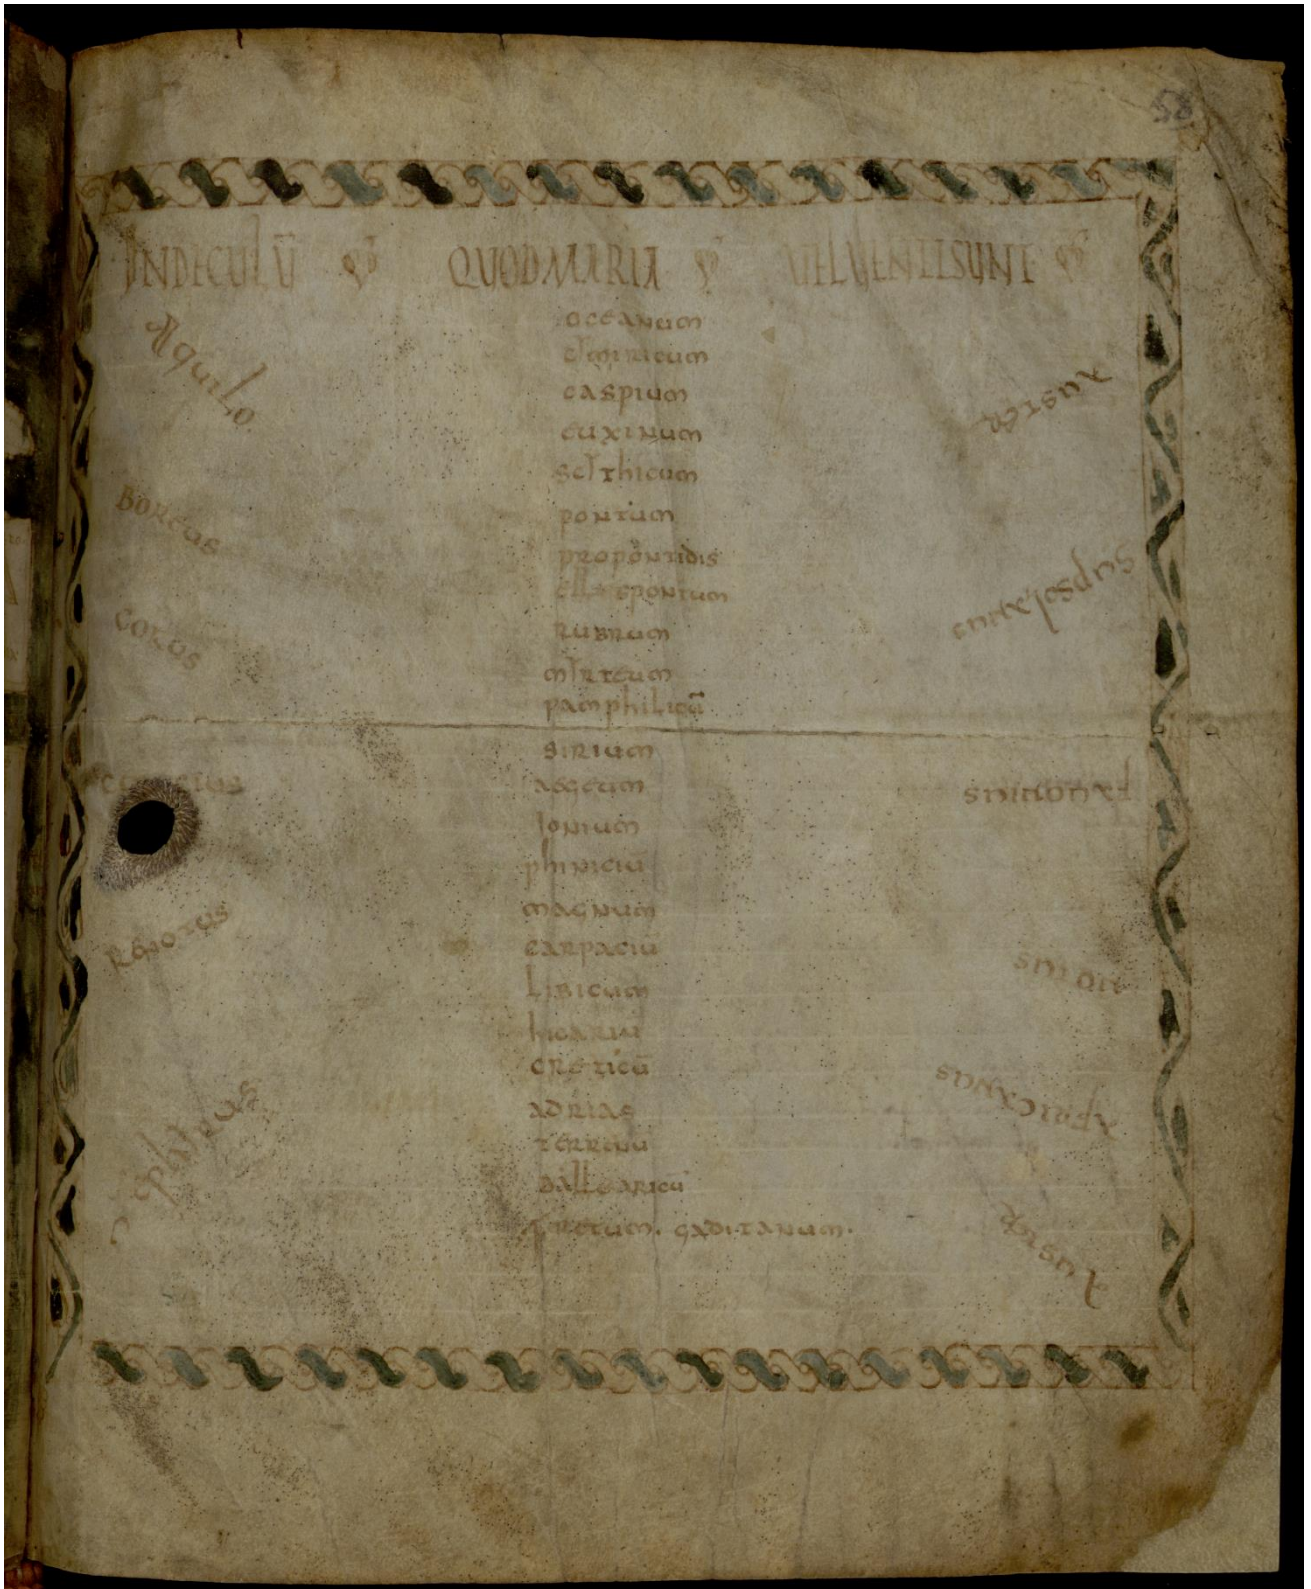 58
INDECULŪ QUOD MARIA UEL UENTI SUNT
Aquilo
Boreas
Coros
Reiotus
oceanum
caspium
euxinum
scithicum
pontum
propontidis
ellespontum
rubrum
mirteum
pamphilicū
sirium
aegeum
Ionium
phiniciū
magnum
carpaciū
libicum
hicariū
creticū
adrias
terrinū
balle aricū
fretum. gaditanum.
Auster
subsolanus
fabonius
notus
Africanus
Auster